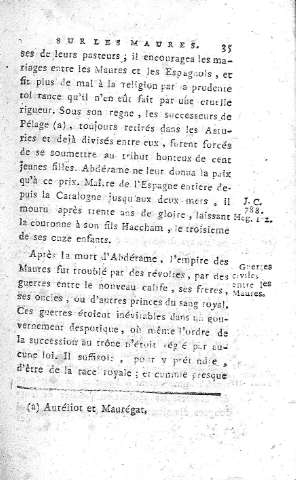 SUR LES MAURES. 35
ses de leurs pasteurs ; il encouragea les ma-
riages entre les Maures et les Espagnols, et
fit plus de mal à la religion par sa prudente
tolérance qu'il n'en eût fait par une cruelle
rigueur. Sous son regne, les successeurs de
Pélage (a), toujours retirés dans les Astu-
ries et déjà divisés entre eux, furent forcés
de se soumettre au tribut honteux de cent
jeunes filles. Abdérame ne leur donna la paix
qu'à ce prix. Maître de l'Espagne entiere de-
puis la Catalogne jusqu'aux deux mers, il
mourut après trente ans de gloire, laissant
la couronne à son fils Haccham, le troisieme
de ses onze enfants.
J. C.
788.
Heg. 172.
Après la mort d'Abdérame, l'empire des
Maures fut troublé par des révoltes, par des
guerres entre le nouveau calife, ses freres,
ses oncles, ou d'autres princes du sang royal.
Ces guerres étoient inévitables dans un gou-
vernement despotique, où même l'ordre de
la succession au trône n'étoit réglé par au-
cune loi. Il suffisoit, pour y prétendre,
d'être de la race royale ; et comme presque
Guerres
civiles
entre les
Maures.
(a) Auréliot et Maurégat.